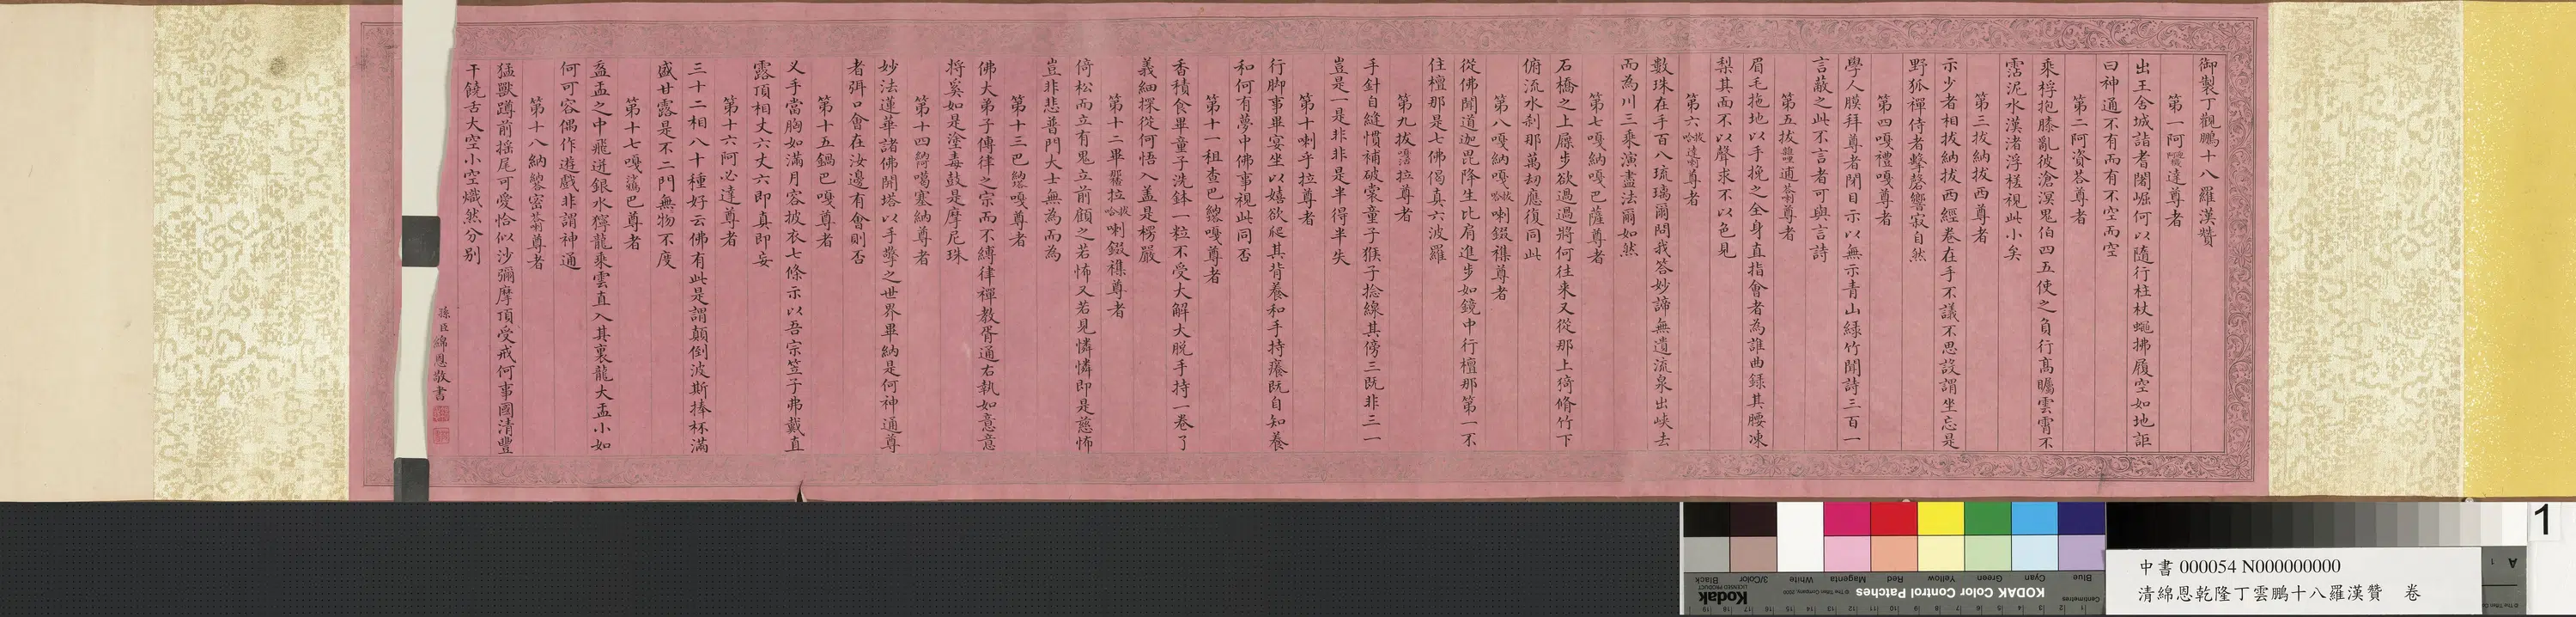 御製丁觀鵬十八羅漢贊
第一阿達尊者
出王舍城詣耆闍崛何以隨行柱杖蠅拂履空如地詎
曰神通不有而有不空而空
第二阿資荅尊者
乘桴抱膝亂彼滄溟鬼伯四五使之負行高矚雲霄不
霑泥水漢渚浮槎視此小矣
第三拔納拔西尊者
示少者相拔納拔西經卷在手不議不思設謂坐忘是
野狐禪侍者擊磬響寂自然
第四嘎禮嘎尊者
學人膜拜尊者閉目示以無示青山綠竹聞詩三百一
言蔽之此不言者可與言詩
第五拔通荅尊者
眉毛拖地以手挽之全身直指會者為誰曲錄其腰凍
梨其面不以聲求不以色見
第六哈拔達喇尊者
數珠在手百八琉璃爾問我答妙諦無遺流泉出峽去
而為川三乘演盡法爾如然
第七嘎納嘎巴薩尊者
石橋之上屧步欲過過將何往來又從那上猗脩竹下
俯流水剎那萬劫應復同此
第八嘎納嘎哈拔喇錣襍尊者
從佛聞道迦毘降生比肩進步如鏡中行檀那第一不
住檀那是七佛偈真六波羅
第九拔嘎沽拉尊者
手針自縫慣補破裳童子猴子捻線其傍三既非三一
豈是一是非非是半得半失
第十喇乎拉尊者
行腳事畢宴坐以嬉欲爬其背養和手持癢既自知養
和何有夢中佛事視此同否
第十一租查巴納塔嘎尊者
香積食畢童子洗鉢一粒不受大解大脫手持一卷了
義細探從何悟入蓋是楞嚴
第十二畢那楂拉哈拔喇錣襍尊者
倚松而立有鬼立前顧之若怖又若見憐憐即是慈怖
豈非悲普門大士無為而為
第十三巴納塔嘎尊者
佛大弟子傳律之宗而不縛律禪教胥通右執如意意
將奚如是塗毒鼓是摩尼珠
第十四納阿噶塞納尊者
妙法蓮華諸佛開塔以手擎之世界畢納是何神通尊
者弭口會在汝邊有會則否
第十五鍋巴嘎尊者
叉手當胸如滿月容披衣七條示以吾宗笠子弗戴直
露頂相丈六丈六即真即妄
第十六阿必達尊者
三十二相八十種好云佛有此是謂顛倒波斯捧杯滿
盛甘露是不二門無物不度
第十七嘎巴尊者
盋盂之中飛迸銀水獰龍乘雲直入其裏龍大盂小如
何可容偶作遊戲非謂神通
第十八納密荅喇尊者
猛獸蹲前搖尾可愛恰似沙彌摩頂受戒何事國清豐
干饒舌大空小空熾然分別
孫臣綿恩敬書
1
中書 000054 N000000000
清綿恩乾隆丁雲鵬十八羅漢贊 卷
KODAK Color Control Patches
Kodak
LICENSED PRODUCT
Blue Cyan Green Yellow Red Magenta White 3/Color Black
Centimetres
A 1